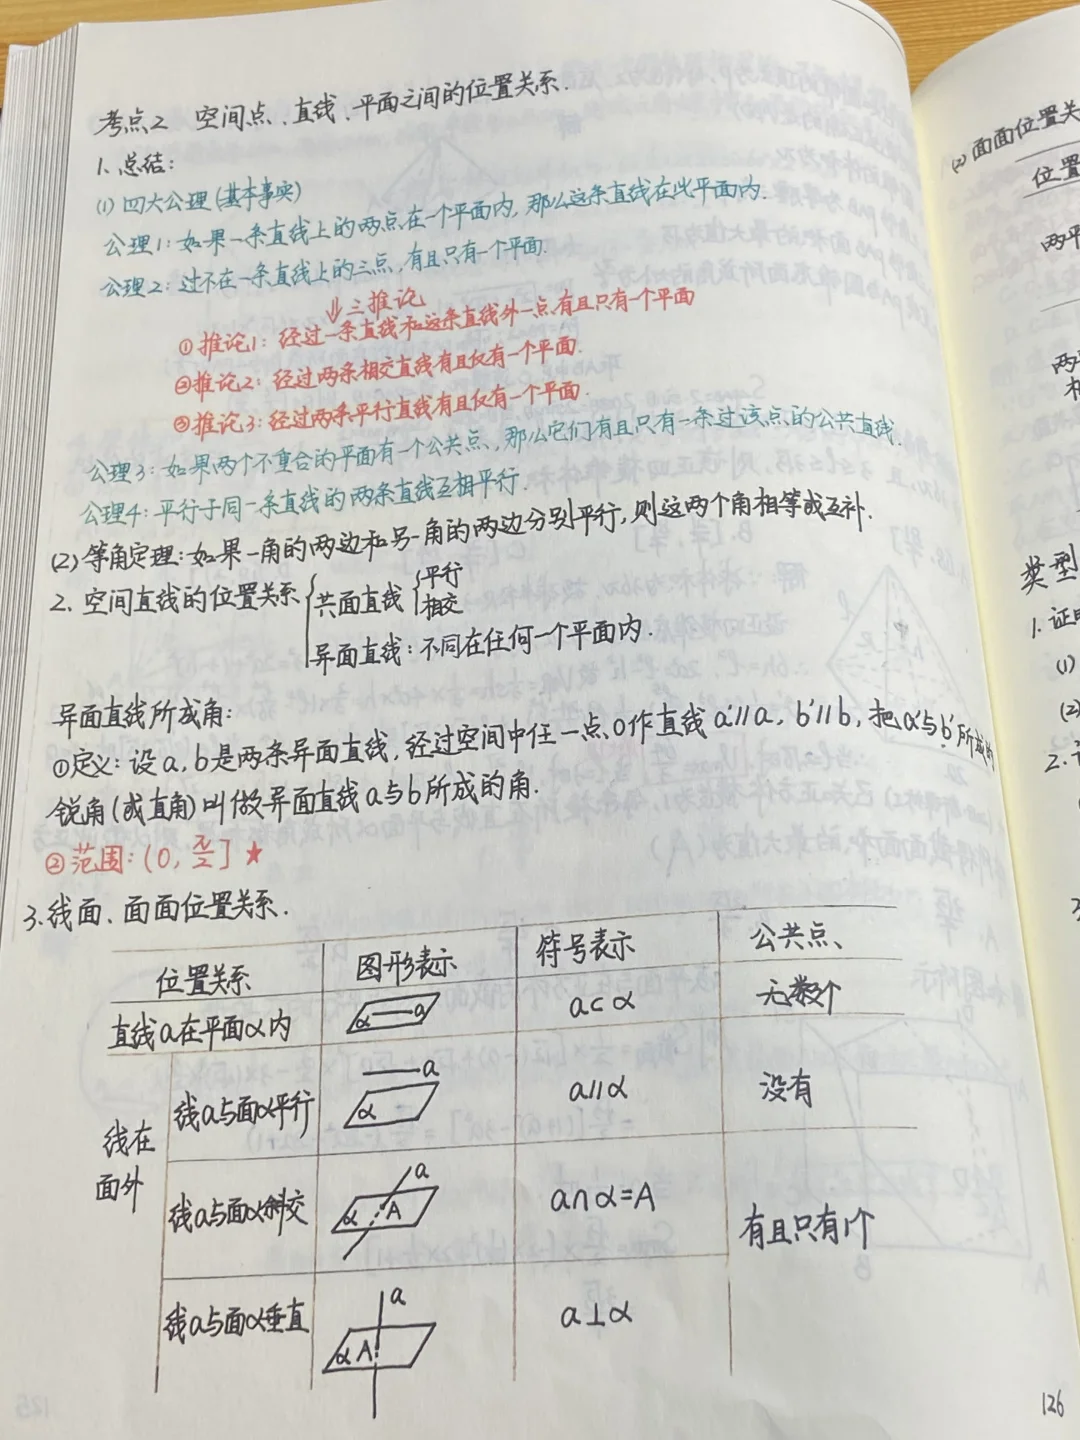 考点2 空间点、直线、平面之间的位置关系.
1、总结:
(1) 四大公理(基本事实)
公理1: 如果一条直线上的两点在一个平面内, 那么这条直线在此平面内.
公理2: 过不在一条直线上的三点, 有且只有一个平面.
⇓三推论
①推论1: 经过一条直线和这条直线外一点,有且只有一个平面
②推论2: 经过两条相交直线有且仅有一个平面.
③推论3: 经过两条平行直线有且仅有一个平面.
公理3: 如果两个不重合的平面有一个公共点、那么它们有且只有一条过该点的公共直线.
公理4: 平行于同一条直线的两条直线互相平行.
(2) 等角定理: 如果一角的两边和另一角的两边分别平行, 则这两个角相等或互补.
2. 空间直线的位置关系 { 共面直线 { 平行
相交
异面直线: 不同在任何一个平面内.
异面直线所成角:
①定义: 设a, b是两条异面直线, 经过空间中任一点O作直线a'∥a, b'∥b, 把a'与b'所成的
锐角(或直角)叫做异面直线a与b所成的角.
②范围: (0, π/2] ★
3.线面、面面位置关系.
位置关系 图形表示 符号表示 公共点、
直线a在平面α内 α a a⊂α 无数个
线在
面外
线a与面α平行 a α a∥α 没有
线a与面α斜交 a α A a∩α=A
有且只有1个
线a与面α垂直 a α A a⊥α
126
(2) 面面位置关
位置
两平
两
相
类型
1. 证
(1)
(2)
2.
125